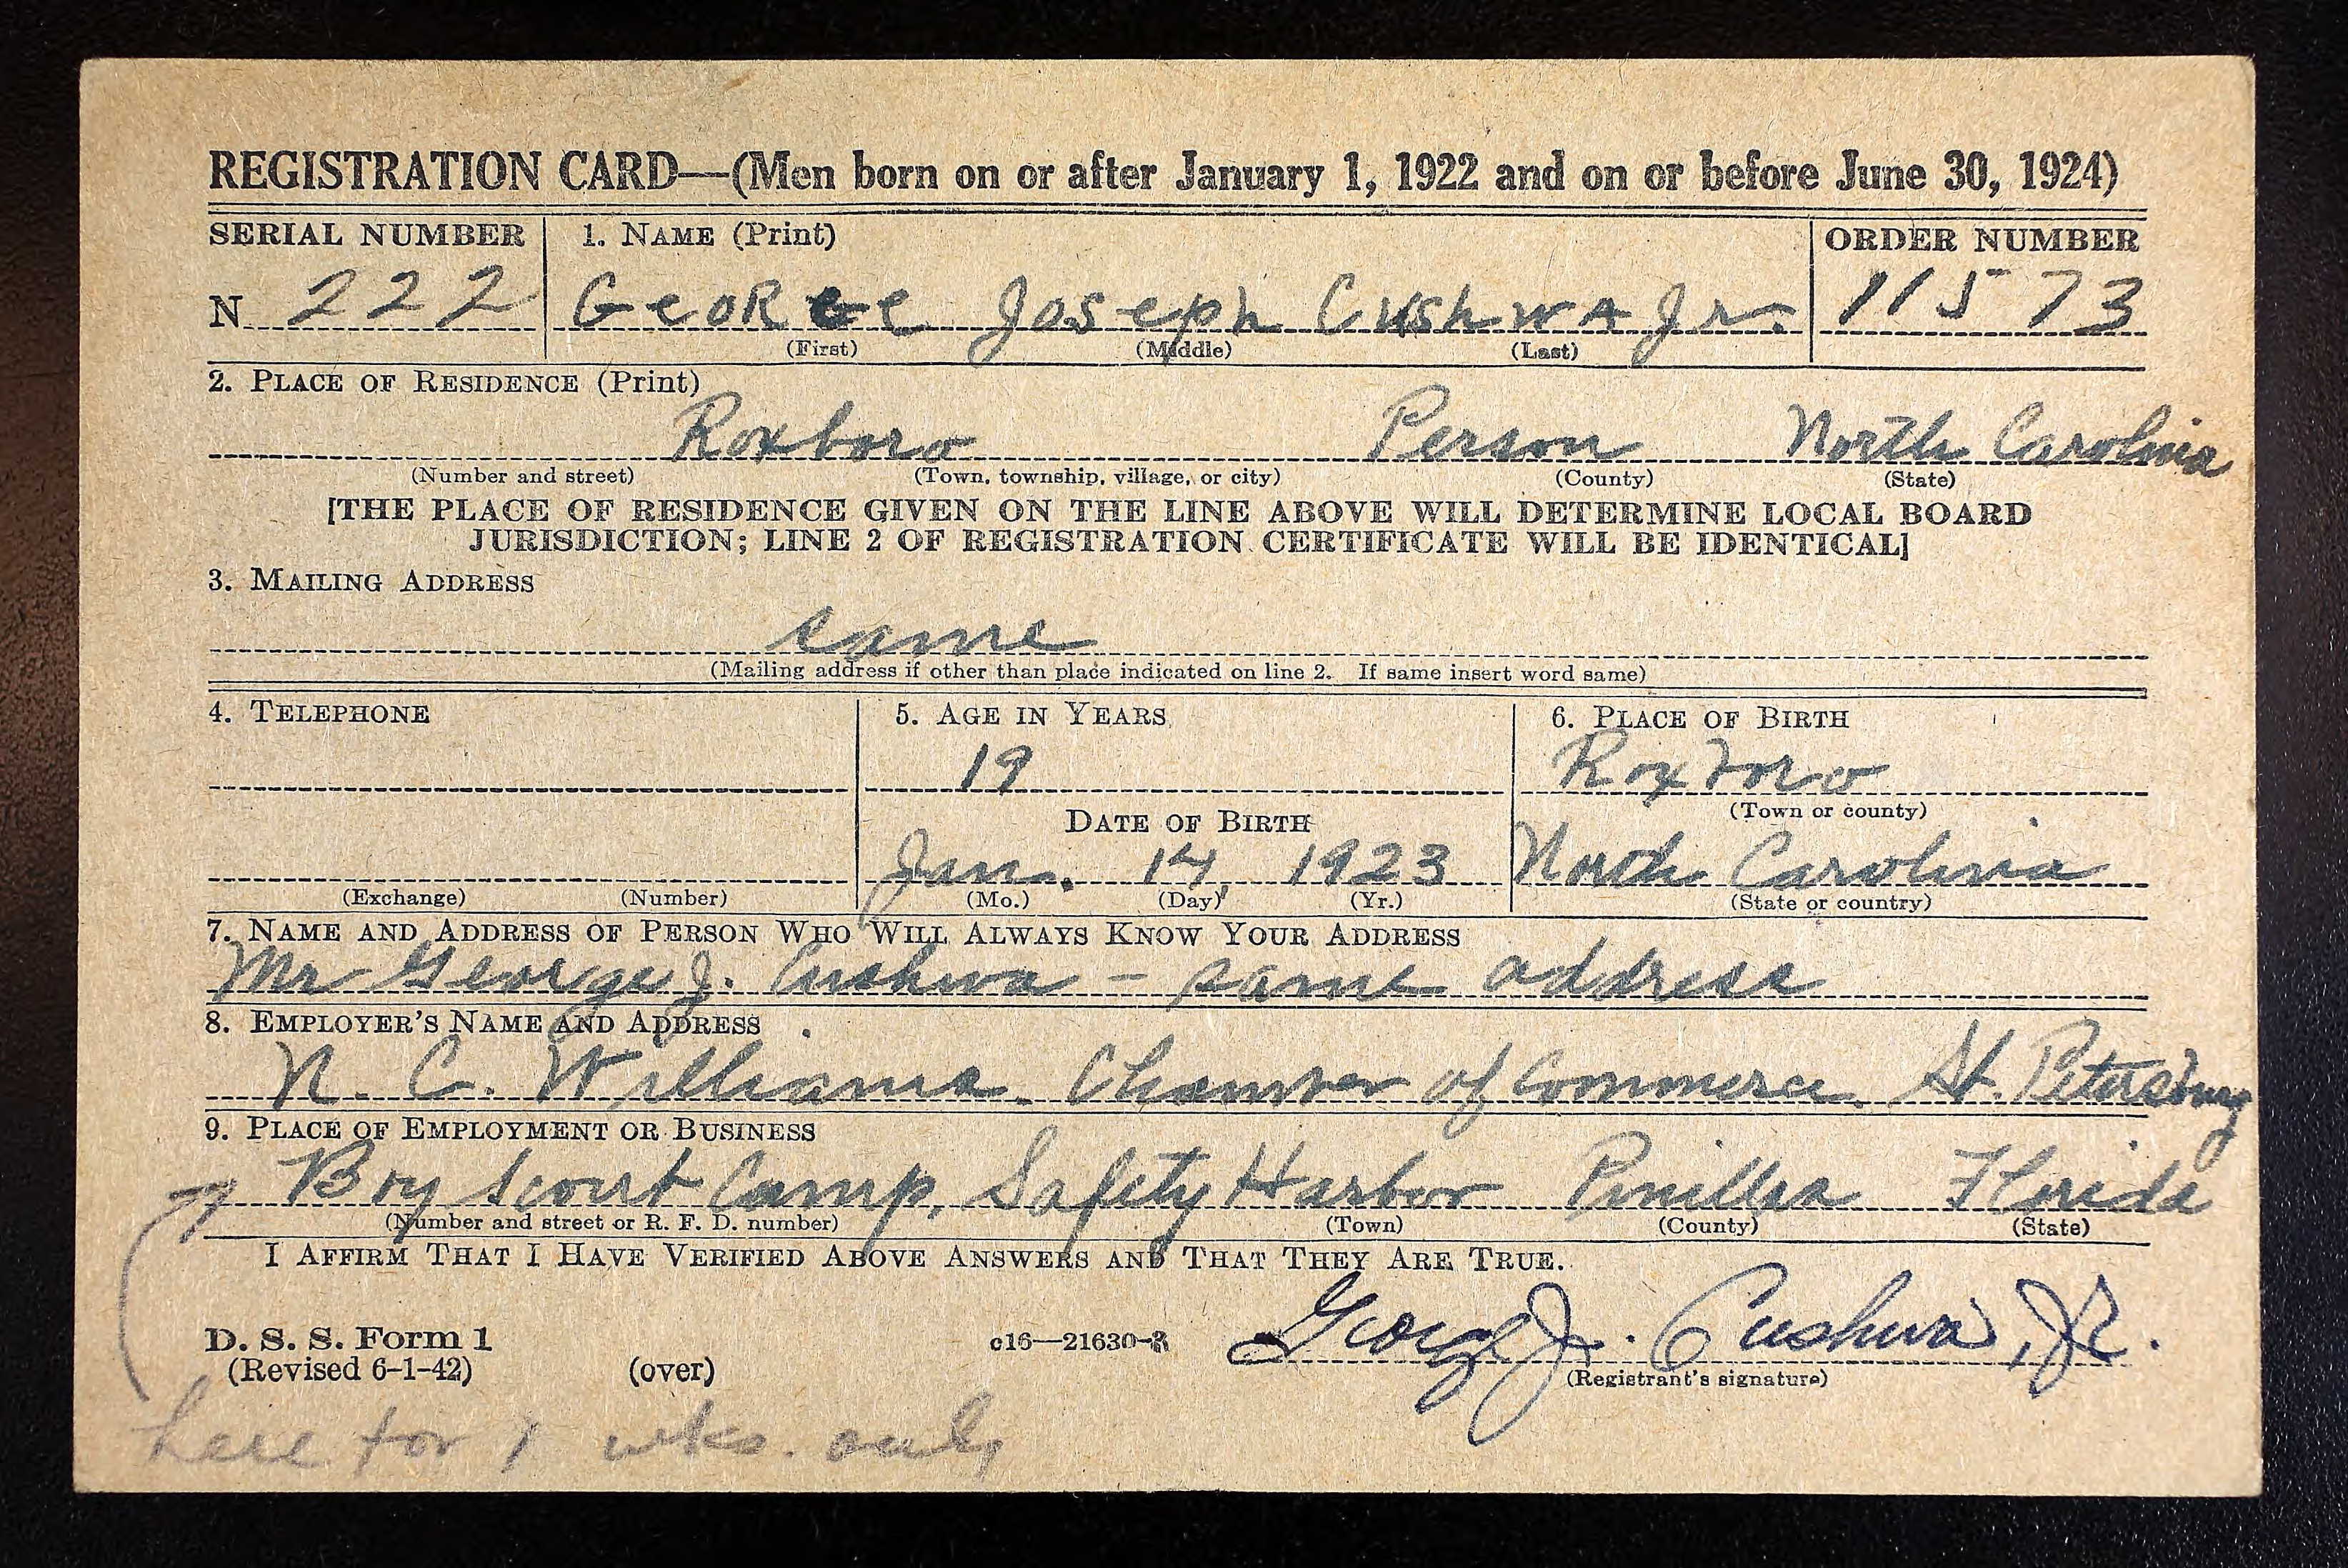 REGISTRATION CARD—(Men born on or after January 1, 1922 and on or before June 30, 1924)
SERIAL NUMBER 1. NAME (Print) ORDER NUMBER
N 222 George Joseph Cushwa Jr. 11573
(First) (Middle) (Last)
2. PLACE OF RESIDENCE (Print)
Roxboro Person North Carolina
(Number and street) (Town, township, village, or city) (County) (State)
[THE PLACE OF RESIDENCE GIVEN ON THE LINE ABOVE WILL DETERMINE LOCAL BOARD
JURISDICTION; LINE 2 OF REGISTRATION CERTIFICATE WILL BE IDENTICAL]
3. MAILING ADDRESS
same
(Mailing address if other than place indicated on line 2. If same insert word same)
4. TELEPHONE 5. AGE IN YEARS 6. PLACE OF BIRTH
19 Roxboro
(Town or county)
DATE OF BIRTH
Jan. 14, 1923 North Carolina
(Exchange) (Number) (Mo.) (Day) (Yr.) (State or country)
7. NAME AND ADDRESS OF PERSON WHO WILL ALWAYS KNOW YOUR ADDRESS
Mr George J. Cushwa - same address
8. EMPLOYER'S NAME AND ADDRESS
N. C. Williams. Chamber of Commerce. St. Petersburg
9. PLACE OF EMPLOYMENT OR BUSINESS
Boy Scout Camp, Safety Harbor Pinellas Florida
(Number and street or R. F. D. number) (Town) (County) (State)
I AFFIRM THAT I HAVE VERIFIED ABOVE ANSWERS AND THAT THEY ARE TRUE.
George J. Cushwa, Jr.
D. S. S. Form 1 c16—21630-3
(Revised 6-1-42) (over) (Registrant's signature)
here for 1 wks. only